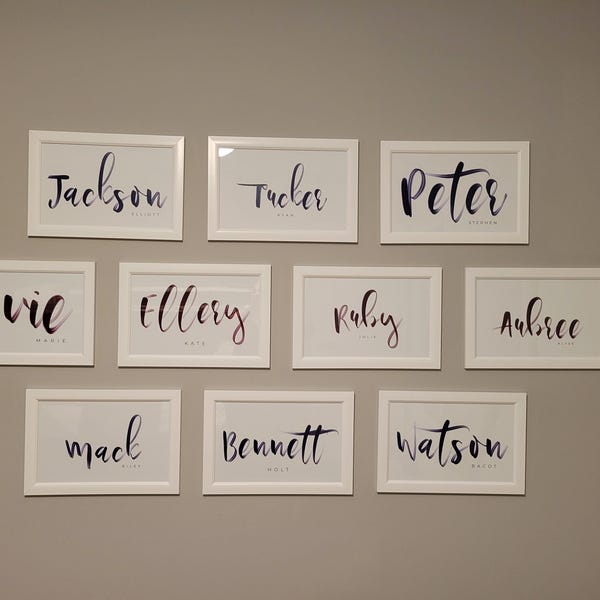 Jackson
ELLIOTT
Tucker
RYAN
Peter
STEPHEN
vie
MARIE
Ellery
KATE
Ruby
JULIA
Aubree
Mack
RILEY
Bennett
HOLT
Watson
BACOT